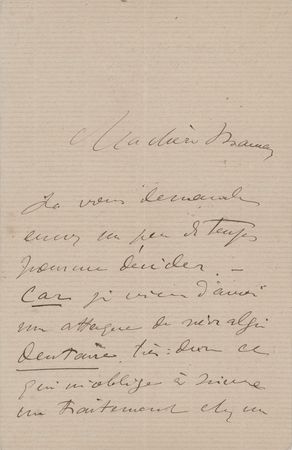 Je vous demande
encore un peu de temps
pour me décider. –
Car je viens d'avoir
une attaque de névralgie
Dentaire,
qui m'oblige à suivre
un traitement chez un